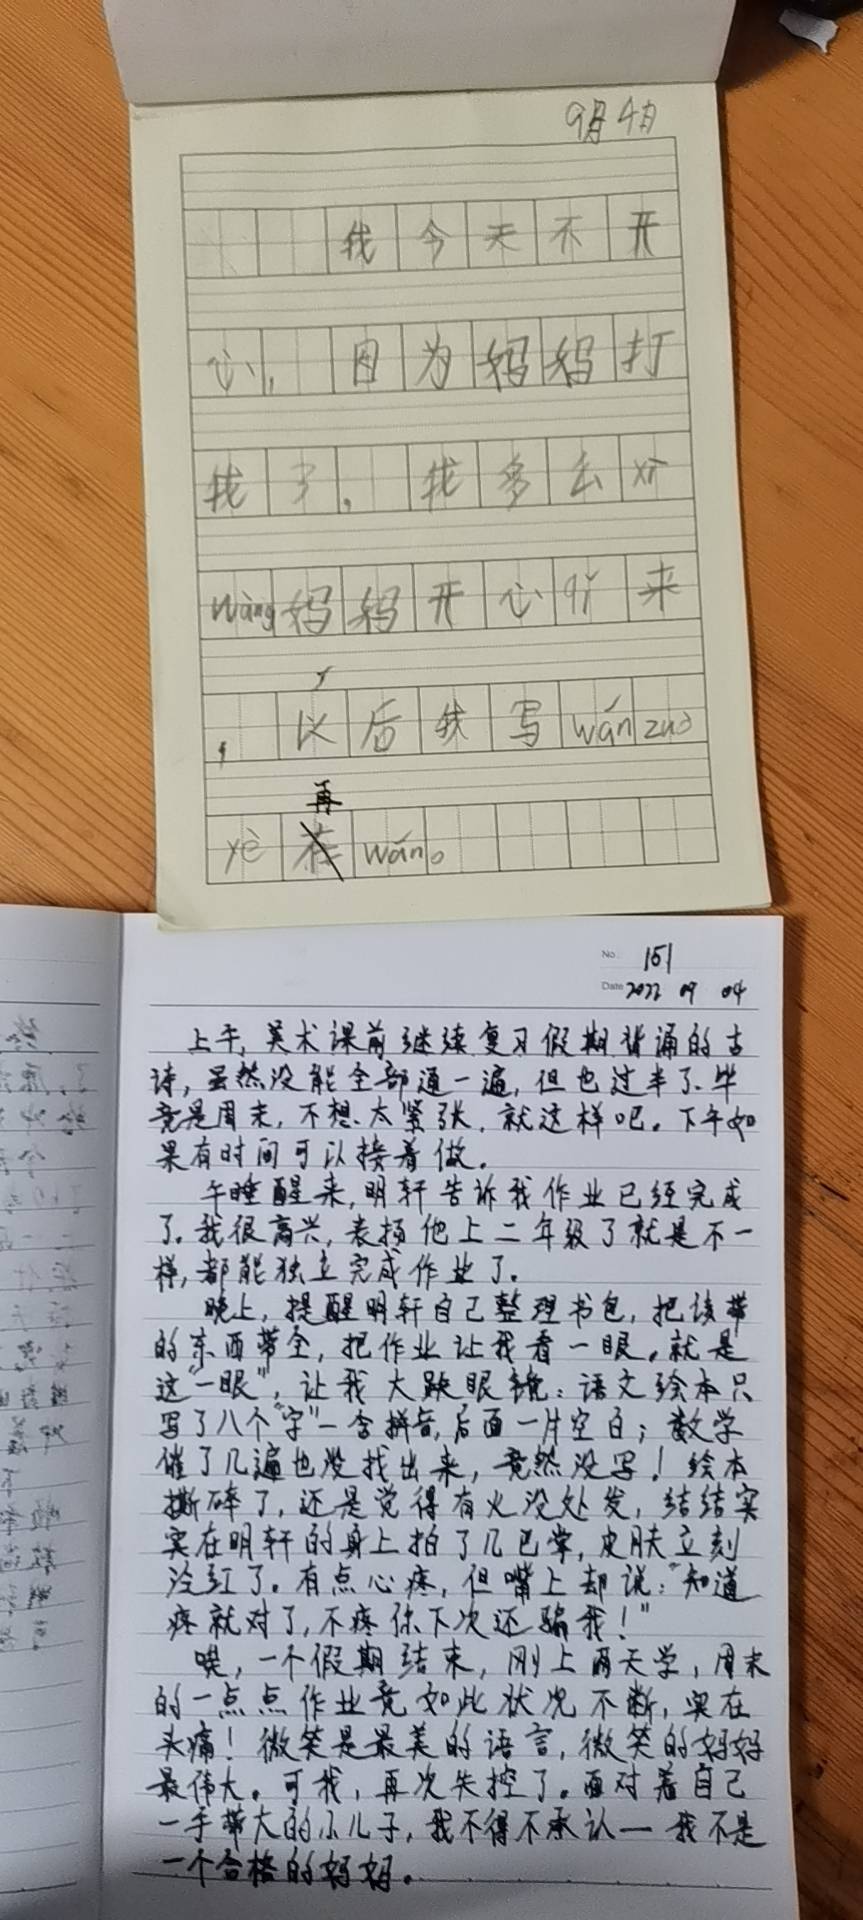 9月4日
我今天不开
心,因为妈妈打
我了。我多么xī
wàng妈妈开心qǐ来
,以后我写wán zuò
再
yè在wán。
No. 151
Date 2022 09 04
上午,美术课前继续复习假期背诵的古
诗,虽然没能全部通一遍,但也过半了。毕
竟是周末,不想太紧张,就这样吧。下午如
果有时间可以接着做。
午睡醒来,明轩告诉我作业已经完成
了。我很高兴,表扬他上二年级了就是不一
样,都能独立完成作业了。
晚上,提醒明轩自己整理书包,把该带
的东西带全,把作业让我看一眼。就是
这"一眼",让我大跌眼镜:语文绘本只
写了八个"字"—含拼音,后面一片空白;数学
催了几遍也没找出来,竟然没写!绘本
撕碎了,还是觉得有火没处发,结结实
实在明轩的身上拍了几巴掌,皮肤立刻
泛红了。有点心疼,但嘴上却说:"知道
疼就对了,不疼你下次还骗我!"
唉,一个假期结束,刚上两天学,周末
的一点点作业竟如此状况不断,实在
头痛!微笑是最美的语言,微笑的妈妈
最伟大。可我,再次失控了。面对着自己
一手带大的小儿子,我不得不承认—我不是
一个合格的妈妈。